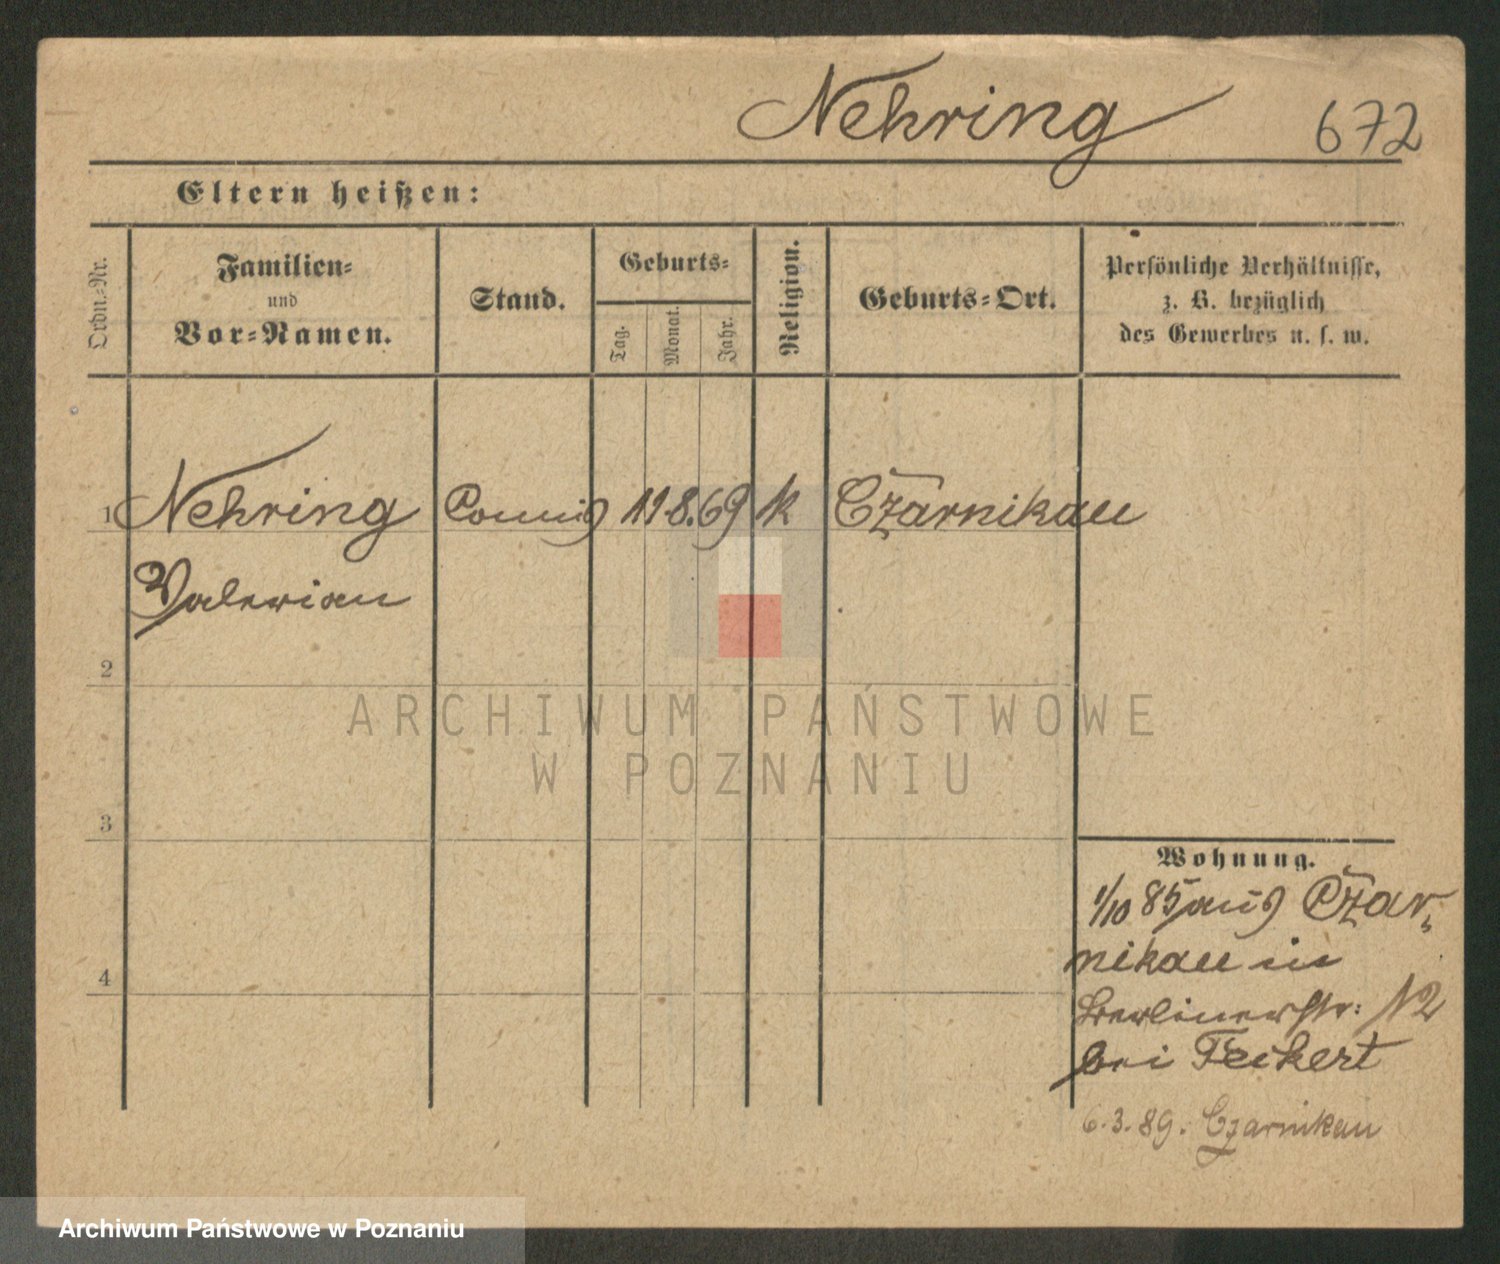 Nehring 672
Eltern heißen:
Ordn.-Nr.
Familien-
und
Vor-Namen.
Stand.
Geburts-
Tag.
Monat.
Jahr.
Religion.
Geburts-Ort.
Persönliche Verhältnisse,
z. B. bezüglich
des Gewerbes u. s. w.
1 Nehring Commis 11.8.69 k Czarnikau
Valerian
2
ARCHIWUM PAŃSTWOWE
W POZNANIU
3
Wohnung.
1/10 85 aus Czar-
nikau in
4
Berlinerstr: 12
bei Feckert
6.3.89. Czarnikau
Archiwum Państwowe w Poznaniu